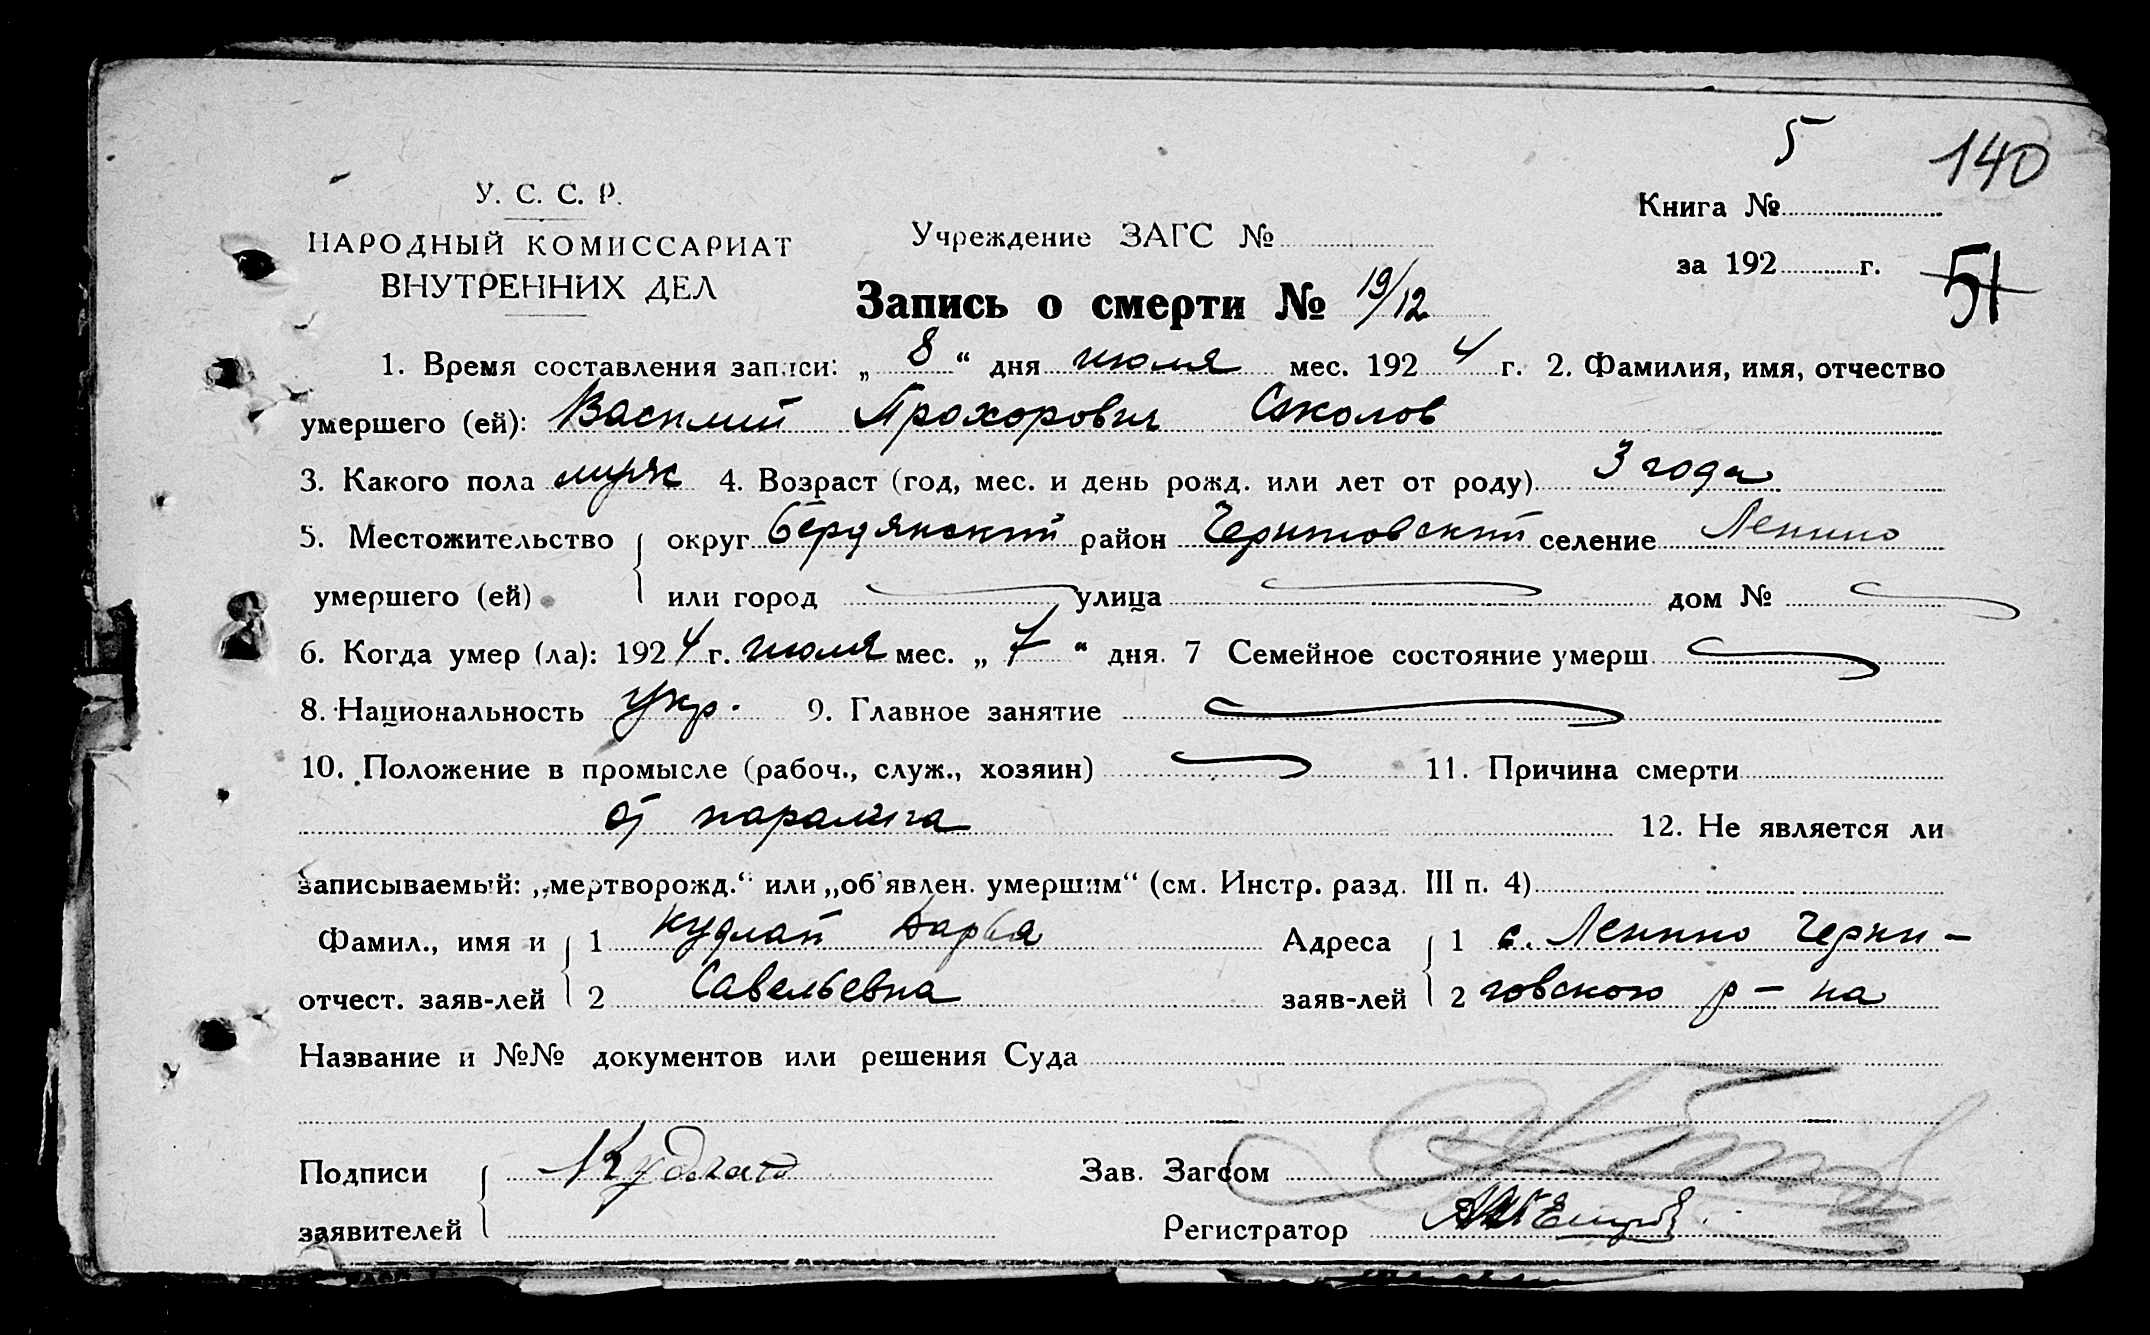 5
140
У. С. С. Р.
НАРОДНЫЙ КОМИССАРИАТ
ВНУТРЕННИХ ДЕЛ
Учреждение ЗАГС №
Книга №
за 192 г.
51
Запись о смерти № 19/12
1. Время составления записи: „ 8 “ дня июля мес. 192 4 г. 2. Фамилия, имя, отчество
умершего (ей): Василий Прохорович Соколов
3. Какого пола муж 4. Возраст (год, мес. и день рожд. или лет от роду) 3 года
5. Местожительство округ Бердянский район Черниговский селение Ленино
умершего (ей) или город улица дом №
6. Когда умер (ла): 192 4 г. июля мес. „ 7 “ дня. 7 Семейное состояние умерш.
8. Национальность укр. 9. Главное занятие
10. Положение в промысле (рабоч., служ., хозяин) 11. Причина смерти
от паралича 12. Не является ли
записываемый: „мертворожд.“ или „об'явлен. умершим“ (см. Инстр. разд. III п. 4)
Фамил., имя и 1 Кудлай Дарья Адреса 1 с. Ленино Черни-
отчест. заяв-лей 2 Савельевна заяв-лей 2 говского р-на
Название и №№ документов или решения Суда
Подписи Кудлай Зав. Загсом
заявителей Регистратор